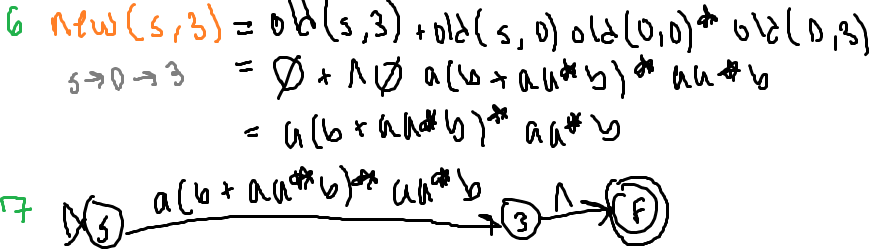 6 new(s,3) = old(s,3) + old(s,0) old(0,0)* old(0,3)
s→0→3 = Ø + Λ Ø a(b + aa*b)* aa*b
= a(b + aa*b)* aa*b
7 a(b + aa*b)* aa*b Λ
s 3 F